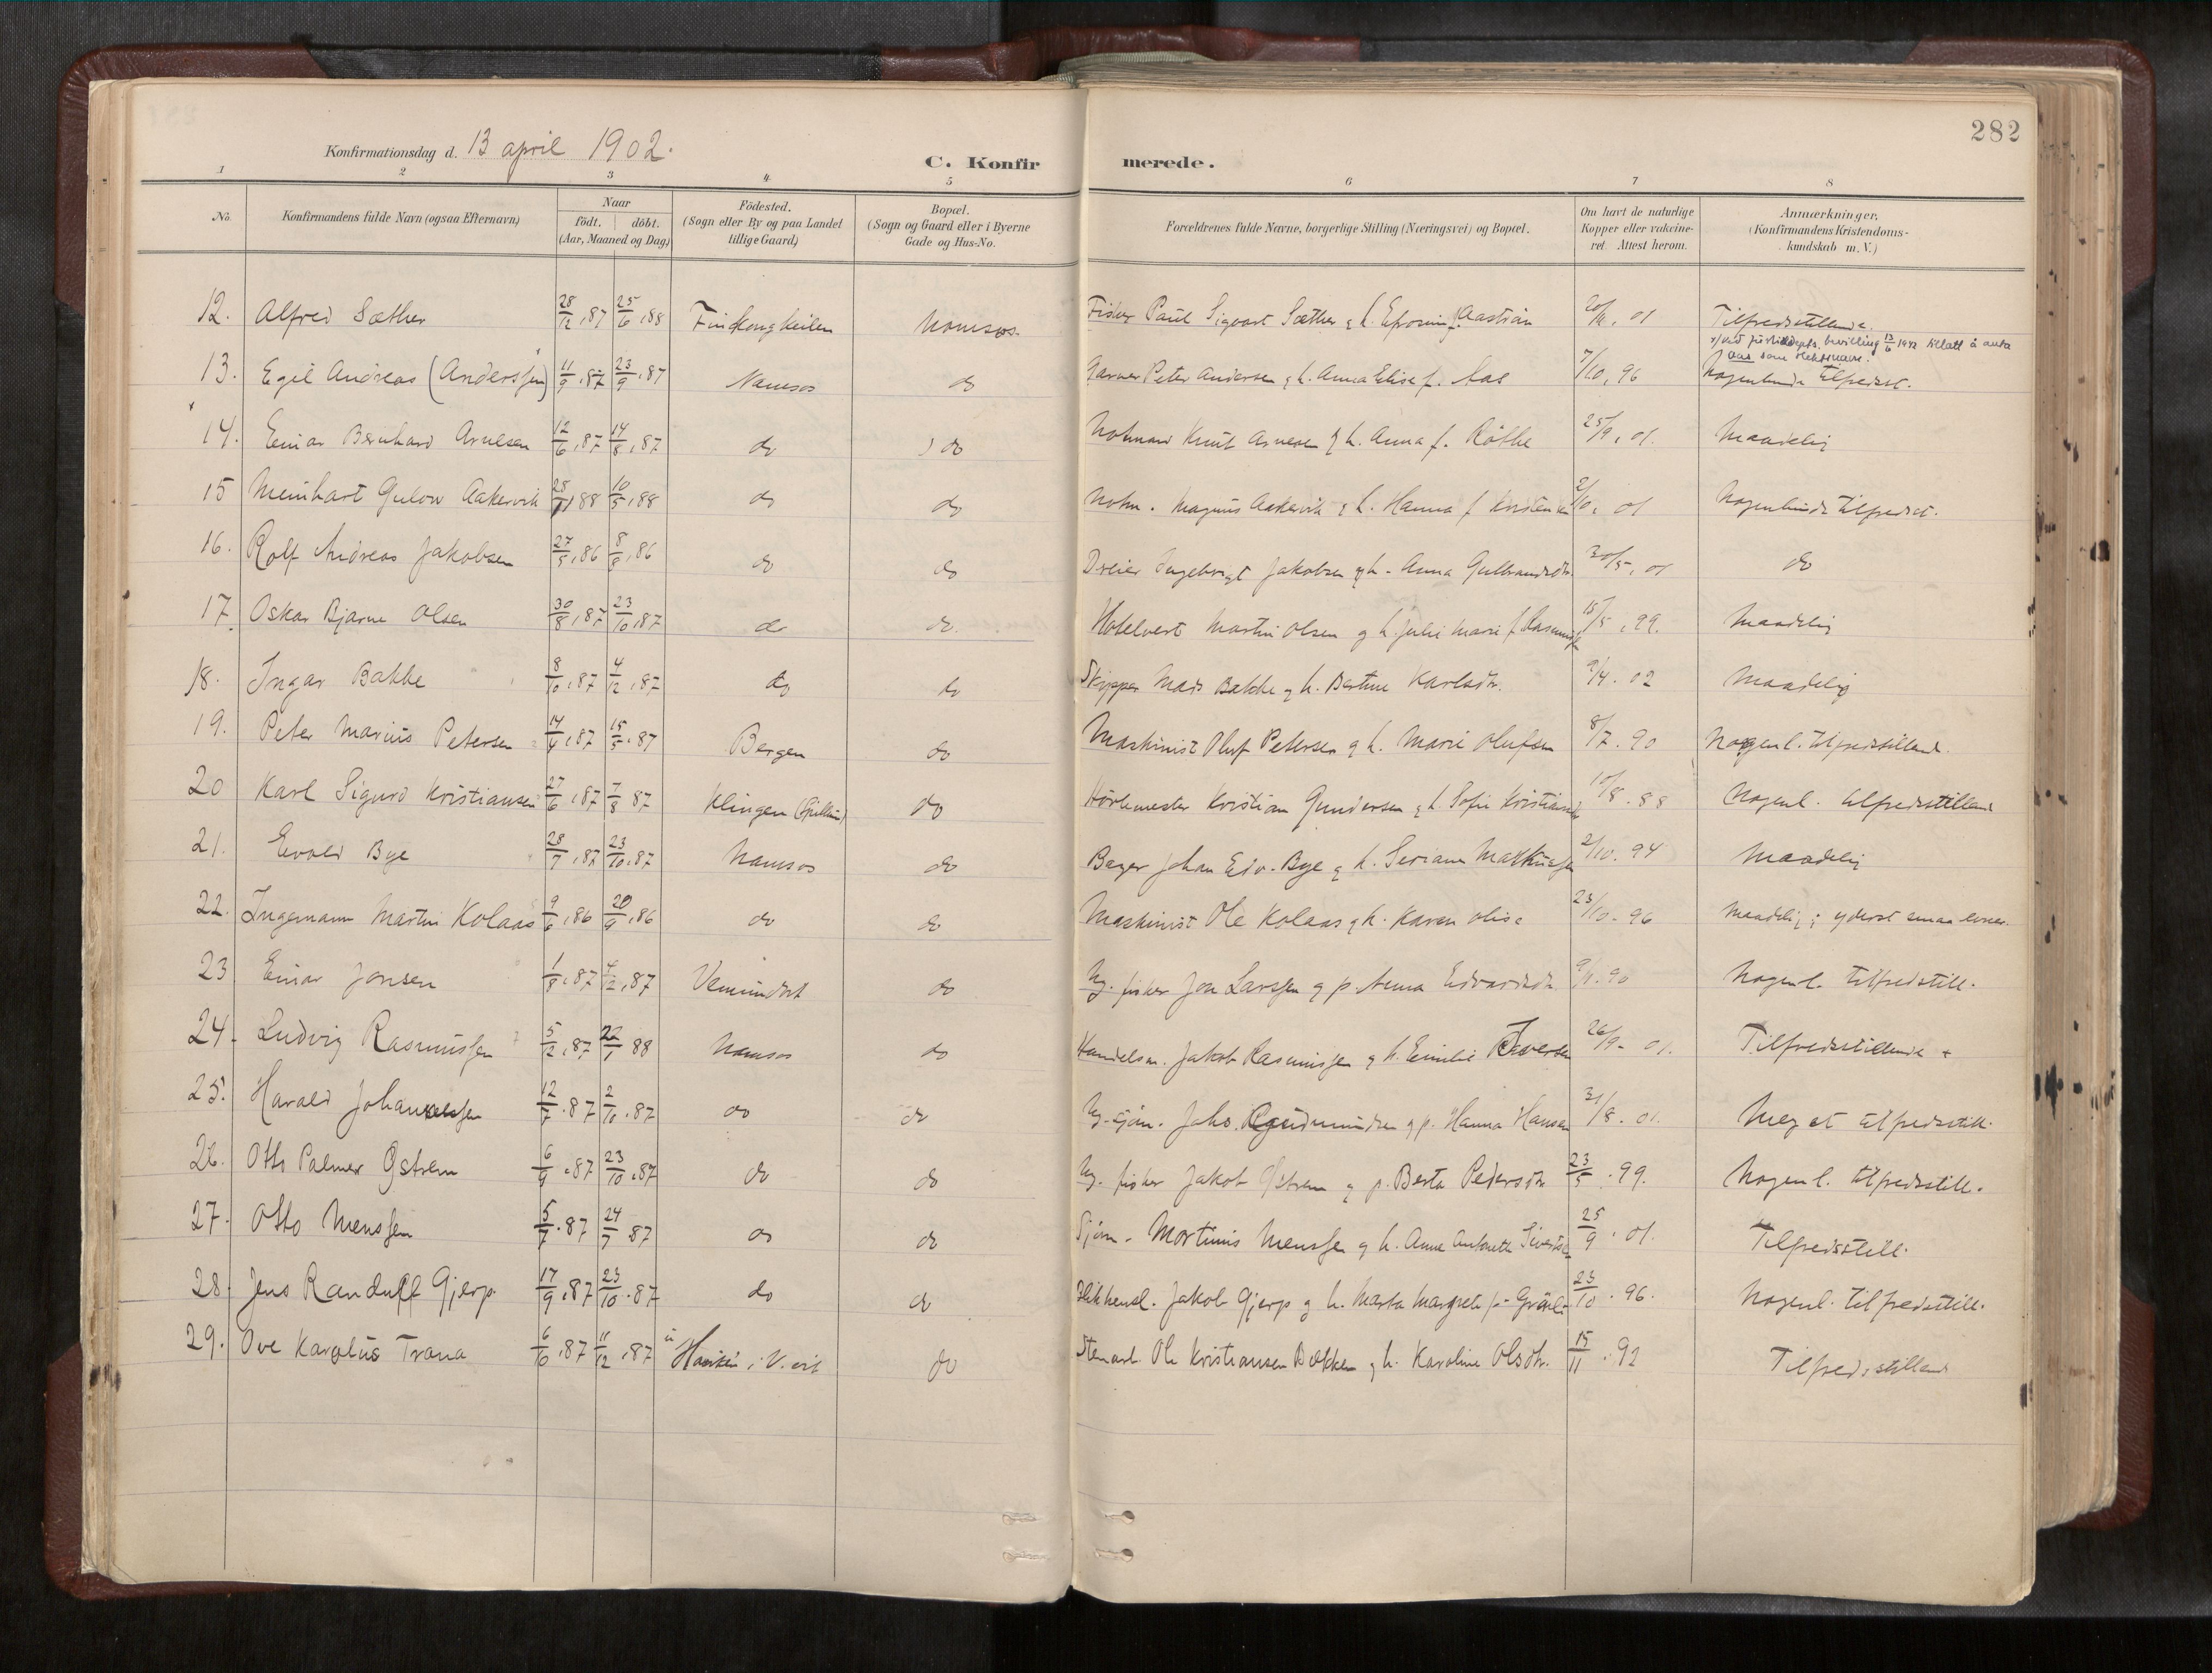 282
Konfirmationsdag d. 13 april 1902.
C. Konfir merede.
1 2 3 4 5 6 7 8
No. Konfirmandens fulde Navn (ogsaa Efternavn) Naar født. døbt. (Aar, Maaned og Dag) Födested. (Sogn eller By og paa Landet tillige Gaard) Bopæl. (Sogn og Gaard eller i Byerne Gade og Hus-No. Forældrenes fulde Navne, borgerlige Stilling (Næringsvei) og Bopæl. Om havt de naturlige Kopper eller vakcineret. Attest herom. Anmærkninger. (Konfirmandens Kristendomskundskab m. V.)
12. Alfred Sæther 28/12, 87 25/6, 88 Namsos Fisker Paul Sigvart Sæther g h. Tilfredsstillende.
13. Egil Andreas (Anderssen) 11/9, 87 23/9, 87 Namsos do Garver Peter Andersen g h. Anna Elise f. Aas 7/10, 96 Nogenlunde tilfredst.
14. Einar Bernhard Arnesen 12/6, 87 14/8, 87 do do Knut Arnesen g h. Anna f. Röthe 25/9, 01. Maadelig
15 Meinhart Gulow Aakervik 88 10/5, 88 do do Magnus Aakervik g h. Hanna f 2/10, 01 Nogenlunde tilfredst.
16. Rolf Andreas Jakobsen 27/5, 86 8/8, 86 do do Dreier Ingebrigt Jakobsen g h. Anna Gulbrandsdtr. 30/5, 01 do
17. Oskar Bjarne Olsen 30/8, 87 23/10, 87 do do Hotelvert Martin Olsen g h. Julie Marie f. 15/5, 99. Maadelig
18. Ingar Bakke 8/10, 87 4/12, 87 do do Skipper Mads Bakke g h. Bertine Karlsdtr. 9/4. 02 Maadelig
19. Peter Marius Petersen 14/4, 87 15/5. 87 Bergen do Maskinist Oluf Petersen g h. Marie Olufsen 8/7. 90 Nogenl. tilfredsstillend.
20 Karl Sigurd Kristiansen 27/6, 87 7/8 87 Klingen do Kristian Gundersen g h. Sofie 10/8. 88 Nogenl. tilfredsstillend
21. Evald Bye 28/7, 87 23/10. 87 Namsos do Bager Johan Edv. Bye g h. 2/10. 94 Maadelig
22. Ingemann Martin Kolaas 9/6, 86 20/9, 86 do do Maskinist Ole Kolaas g h. Karen Olise 23/10. 96 Maadelig; yderst smaa evner.
23 Einar Jonsen 1/8, 87 87 do fisker Jon Larssen g p. Anna Edvardsdtr. Nogenl. tilfredstill.
24. Ludvig Rasmussen 5/12, 87 22/1 88 Namsos do Handelsm. Jakob Rasmussen g h. Emilie 26/9. 01. Tilfredsstillende +
25. Harald Johannessen 12/7. 87 2/10. 87 do do Hanna Hansen 31/8. 01. Meget tilfredsstill.
26. Otto Palmer Ystrem 6/9, 87 23/10, 87 do do fisker Jakob Ystrem g p. Berta Pedersdtr. 23/5. 99. Nogenl. tilfredsstill.
27. Otto Menssen 5/7. 87 24/7 87 do do Sjöm. Mortinus Menssen g h. Anne Antonette 25/9. 01. Tilfredsstill.
28. Jens Randulff Gjerp. 17/9, 87 23/10. 87 do do Blikkensl. Jakob Gjerp g h. Marta Margrete f. 23/10. 96. Nogenl. tilfredsstill.
29. Ove Karolius Trana 6/10, 87 11/12, 87 do Stenarb. Ole Kristiansen Bækken g h. Karoline Olsdtr. 15/11. 92 Tilfredsstillend